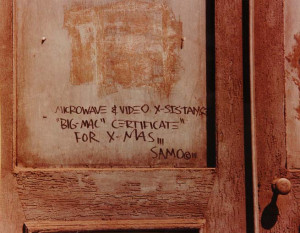 MICROWAVE & VIDEO X-SISTANCE
"BIG-MAC" CERTIFICATE"
FOR X-MAS,,,
SAMO©,,,